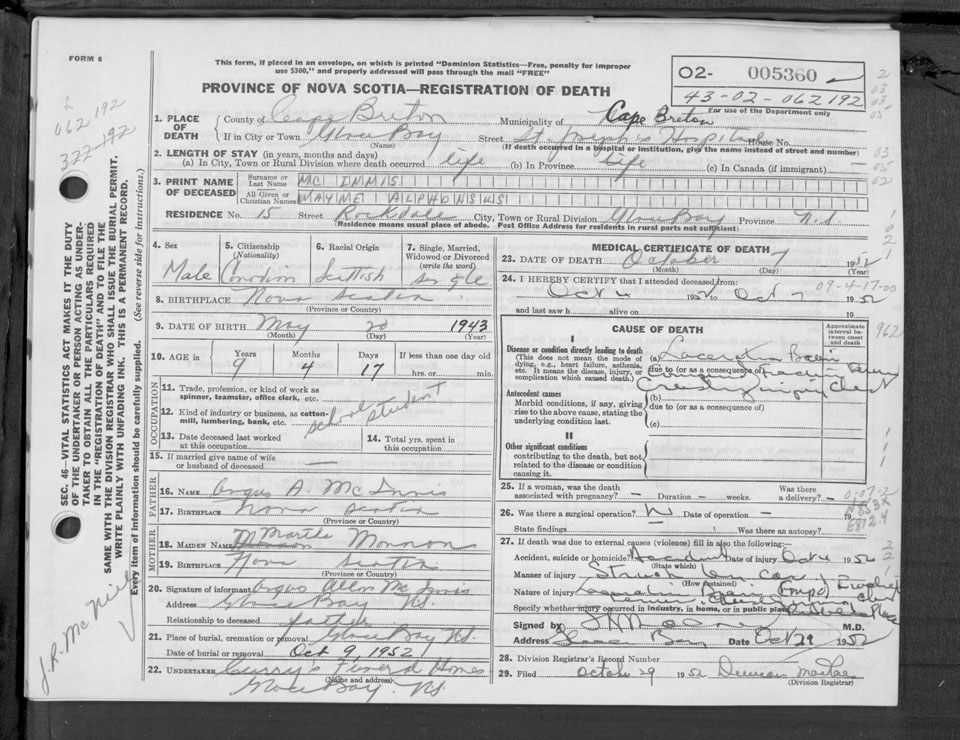 FORM 6
This form, if placed in an envelope, on which is printed "Dominion Statistics—Free, penalty for improper
use $300," and properly addressed will pass through the mail "FREE"
PROVINCE OF NOVA SCOTIA—REGISTRATION OF DEATH
O2- 005360
43-02-062192
For use of the Department only
062192
322-192
1. PLACE OF DEATH
County of Cape Breton Municipality of Cape Breton
If in City or Town Glace Bay Street St. Joseph's Hospital House No.
(Name) (If death occurred in a hospital or institution, give the name instead of street and number)
2. LENGTH OF STAY (in years, months and days)
(a) In City, Town or Rural Division where death occurred life (b) In Province life (c) In Canada (if immigrant) —
3. PRINT NAME OF DECEASED
Surname or Last Name MC INNIS
All Given or Christian Names MAYME ALPHONSUS
RESIDENCE No. 15 Street Rockdale City, Town or Rural Division Glace Bay Province N.S.
(Residence means usual place of abode. Post Office Address for residents in rural parts not sufficient)
4. Sex
Male
5. Citizenship (Nationality)
Canadian
6. Racial Origin
Scottish
7. Single, Married, Widowed or Divorced (write the word)
single
8. BIRTHPLACE Nova Scotia
(Province or Country)
9. DATE OF BIRTH May 20 1943
(Month) (Day) (Year)
10. AGE in Years Months Days If less than one day old
9 4 17 hrs. or min.
OCCUPATION
11. Trade, profession, or kind of work as
spinner, teamster, office clerk, etc.
12. Kind of industry or business, as cotton-
mill, lumbering, bank, etc. school student
13. Date deceased last worked
at this occupation
14. Total yrs. spent in
this occupation
15. If married give name of wife
or husband of deceased —
FATHER
16. Name Angus A. McInnis
17. Birthplace Nova Scotia
(Province or Country)
MOTHER
18. Maiden Name Martha
19. Birthplace Nova Scotia
(Province or Country)
20. Signature of informant Angus Allen McInnis
Address Glace Bay NS.
Relationship to deceased father
21. Place of burial, cremation or removal Glace Bay NS.
Date of burial or removal Oct 9, 1952
22. Undertaker Curry's Funeral Homes
(Name and address)
Glace Bay. NS.
MEDICAL CERTIFICATE OF DEATH
23. DATE OF DEATH October 7 1952
(Month) (Day) (Year)
24. I HEREBY CERTIFY that I attended deceased from:
Oct 4 1952 to Oct 1952
and last saw h alive on 19
09-4-17-00
CAUSE OF DEATH
Approximate interval between onset and death
I
Disease or condition directly leading to death
(This does not mean the mode of
dying, e.g., heart failure, asthenia,
etc. It means the disease, injury, or
complication which caused death.)
(a) Laceration Brain
due to (or as a consequence of)
Crushing injury chest
Antecedent causes
Morbid conditions, if any, giving
rise to the above cause, stating the
underlying condition last.
(b)
due to (or as a consequence of)
(c)
II
Other significant conditions
contributing to the death, but not
related to the disease or condition
causing it.
962
25. If a woman, was the death
associated with pregnancy? — Duration — weeks. Was there
a delivery? —
26. Was there a surgical operation? N Date of operation — 19
State findings Was there an autopsy?
27. If death was due to external causes (violence) fill in also the following:
Accident, suicide or homicide? Accident Date of injury Oct 4 1952
(State which)
Manner of injury Struck by car
(How sustained)
Nature of injury Laceration Brain
Specify whether injury occurred in industry, in home, or in public place
Signed by M.D.
Address Glace Bay Date Oct 29 1952
28. Division Registrar's Record Number
29. Filed October 29 1952 Duncan MacRae
(Division Registrar)
SEC. 46 VITAL STATISTICS ACT MAKES IT THE DUTY
OF THE UNDERTAKER OR PERSON ACTING AS UNDER-
TAKER TO OBTAIN ALL THE PARTICULARS REQUIRED
IN THE "REGISTRATION OF DEATH" AND TO FILE THE
SAME WITH THE DIVISION REGISTRAR WHO SHALL ISSUE THE BURIAL PERMIT.
WRITE PLAINLY WITH UNFADING INK. THIS IS A PERMANENT RECORD.
Every item of information should be carefully supplied. (See reverse side for instructions.)
J.R. McNeil